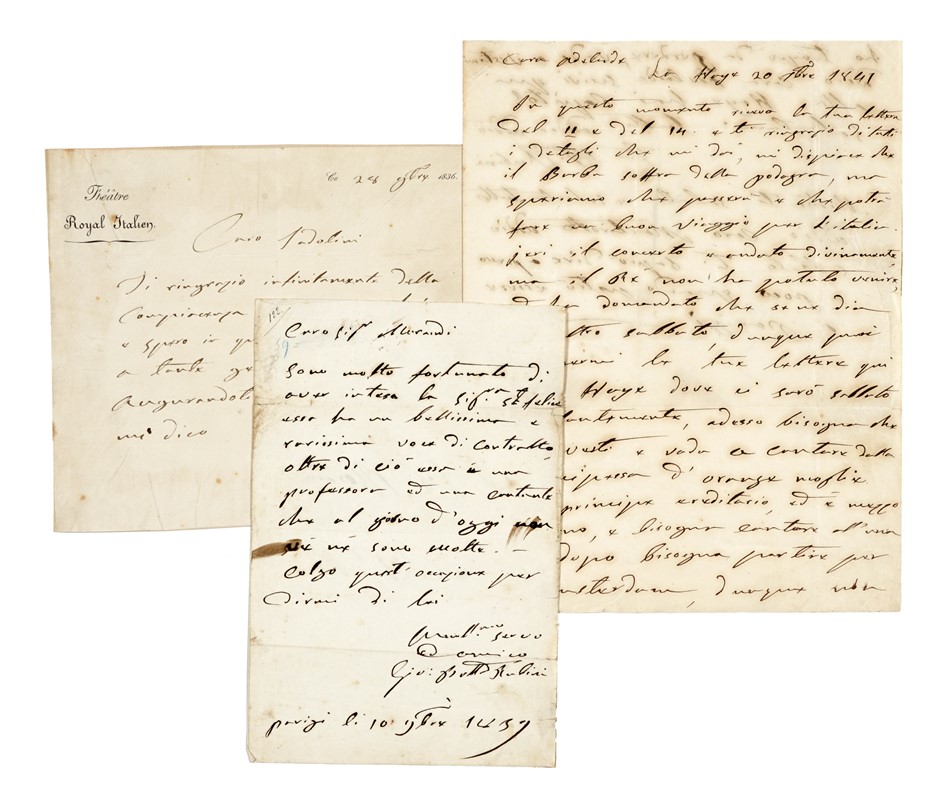 Théâtre
Royal Italien.
Ce 28 9bre. 1836.
Caro Tadolini
Ti ringrazio infinitamente della
Compiacenza
e spero in
a tante
augurandoti
mi dico
122
59
Caro Sigr Morandi
Sono molto fortunato di
aver intesa la Sigra Sn felice
essa ha un bellissima e
rarissima voce di Contralto
oltre di ciò essa è una
professora ed una cantante
che al giorno d'oggi non
ve ne sono molte. —
Colgo quest'occasione per
dirmi di lei
servo
ed amico
Gio: Batta Rubini
parigi li 10 9bre 1839
Cara Adelaide
La Haye 20 1841
In questo momento ricevo la tua lettera
del 11 e del 14. e ti ringrazio di tutti
i detagli che mi dai, mi dispiace che
il Barba soffra della podagra, ma
speriamo che passerà e che potrà
fare un buon viaggio per l'italia.
jeri il concerto è andato divinamente
ma il Re non ha potuto venire,
ed ha domandato che sene dia
altro sabbato, dunque puoi
la tua lettera qui
Haye dove ci sarò sabbato
adesso bisogna che
vesti e vada a cantare dalla
d'orange moglie
principe ereditario, ed è mezzo
e bisogna cantare all'una
dopo bisogna partire per
dunque non